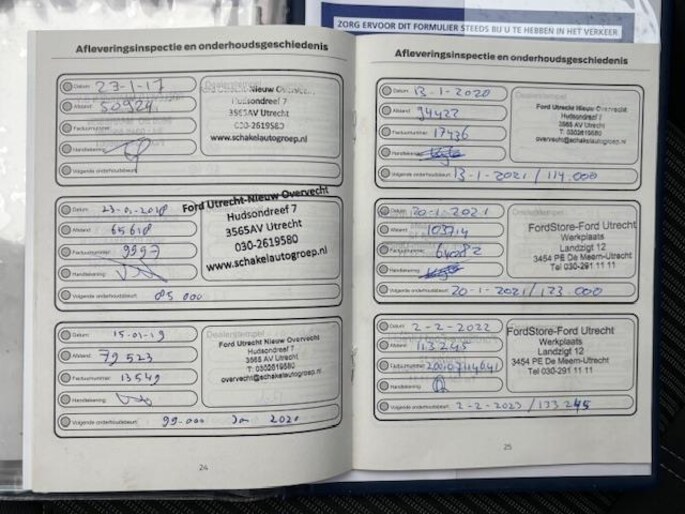 ZORG ERVOOR DIT FORMULIER STEEDS BIJ U TE HEBBEN IN HET VERKEER
Afleveringsinspectie en onderhoudsgeschiedenis
Datum: 23-1-17
Afstand: 50924
Factuurnummer:
Handtekening:
Volgende onderhoudsbeurt:
Nieuw Overvecht
Hudsondreef 7
3565AV Utrecht
030-2619580
www.schakelautogroep.nl
Datum: 23-01-2018
Afstand: 65618
Factuurnummer: 9997
Handtekening:
Volgende onderhoudsbeurt: 85 000
Ford Utrecht-Nieuw Overvecht
Hudsondreef 7
3565AV Utrecht
030-2619580
www.schakelautogroep.nl
Datum: 15-01-19
Afstand: 79 523
Factuurnummer: 13549
Handtekening:
Volgende onderhoudsbeurt: 99-000 Jan 2020
Ford Utrecht Nieuw Overvecht
Hudsondreef 7
3565 AV Utrecht
T: 0302619580
overvecht@schakelautogroep.nl
24
Afleveringsinspectie en onderhoudsgeschiedenis
Datum: 13-1-2020
Afstand: 94422
Factuurnummer: 17436
Handtekening:
Volgende onderhoudsbeurt: 13-1-2021 / 114.000
Ford Utrecht Nieuw Overvecht
Hudsondreef 7
3565 AV Utrecht
T: 0302619580
overvecht@schakelautogroep.nl
Datum: 20-1-2021
Afstand: 103714
Factuurnummer: 64082
Handtekening:
Volgende onderhoudsbeurt: 20-1-2021/123.000
FordStore-Ford Utrecht
Werkplaats
Landzigt 12
3454 PE De Meern-Utrecht
Tel 030-291 11 11
Datum: 2-2-2022
Afstand: 113245
Factuurnummer:
Handtekening:
Volgende onderhoudsbeurt: 2-2-2023/133245
FordStore-Ford Utrecht
Werkplaats
Landzigt 12
3454 PE De Meern-Utrecht
Tel 030-291 11 11
25